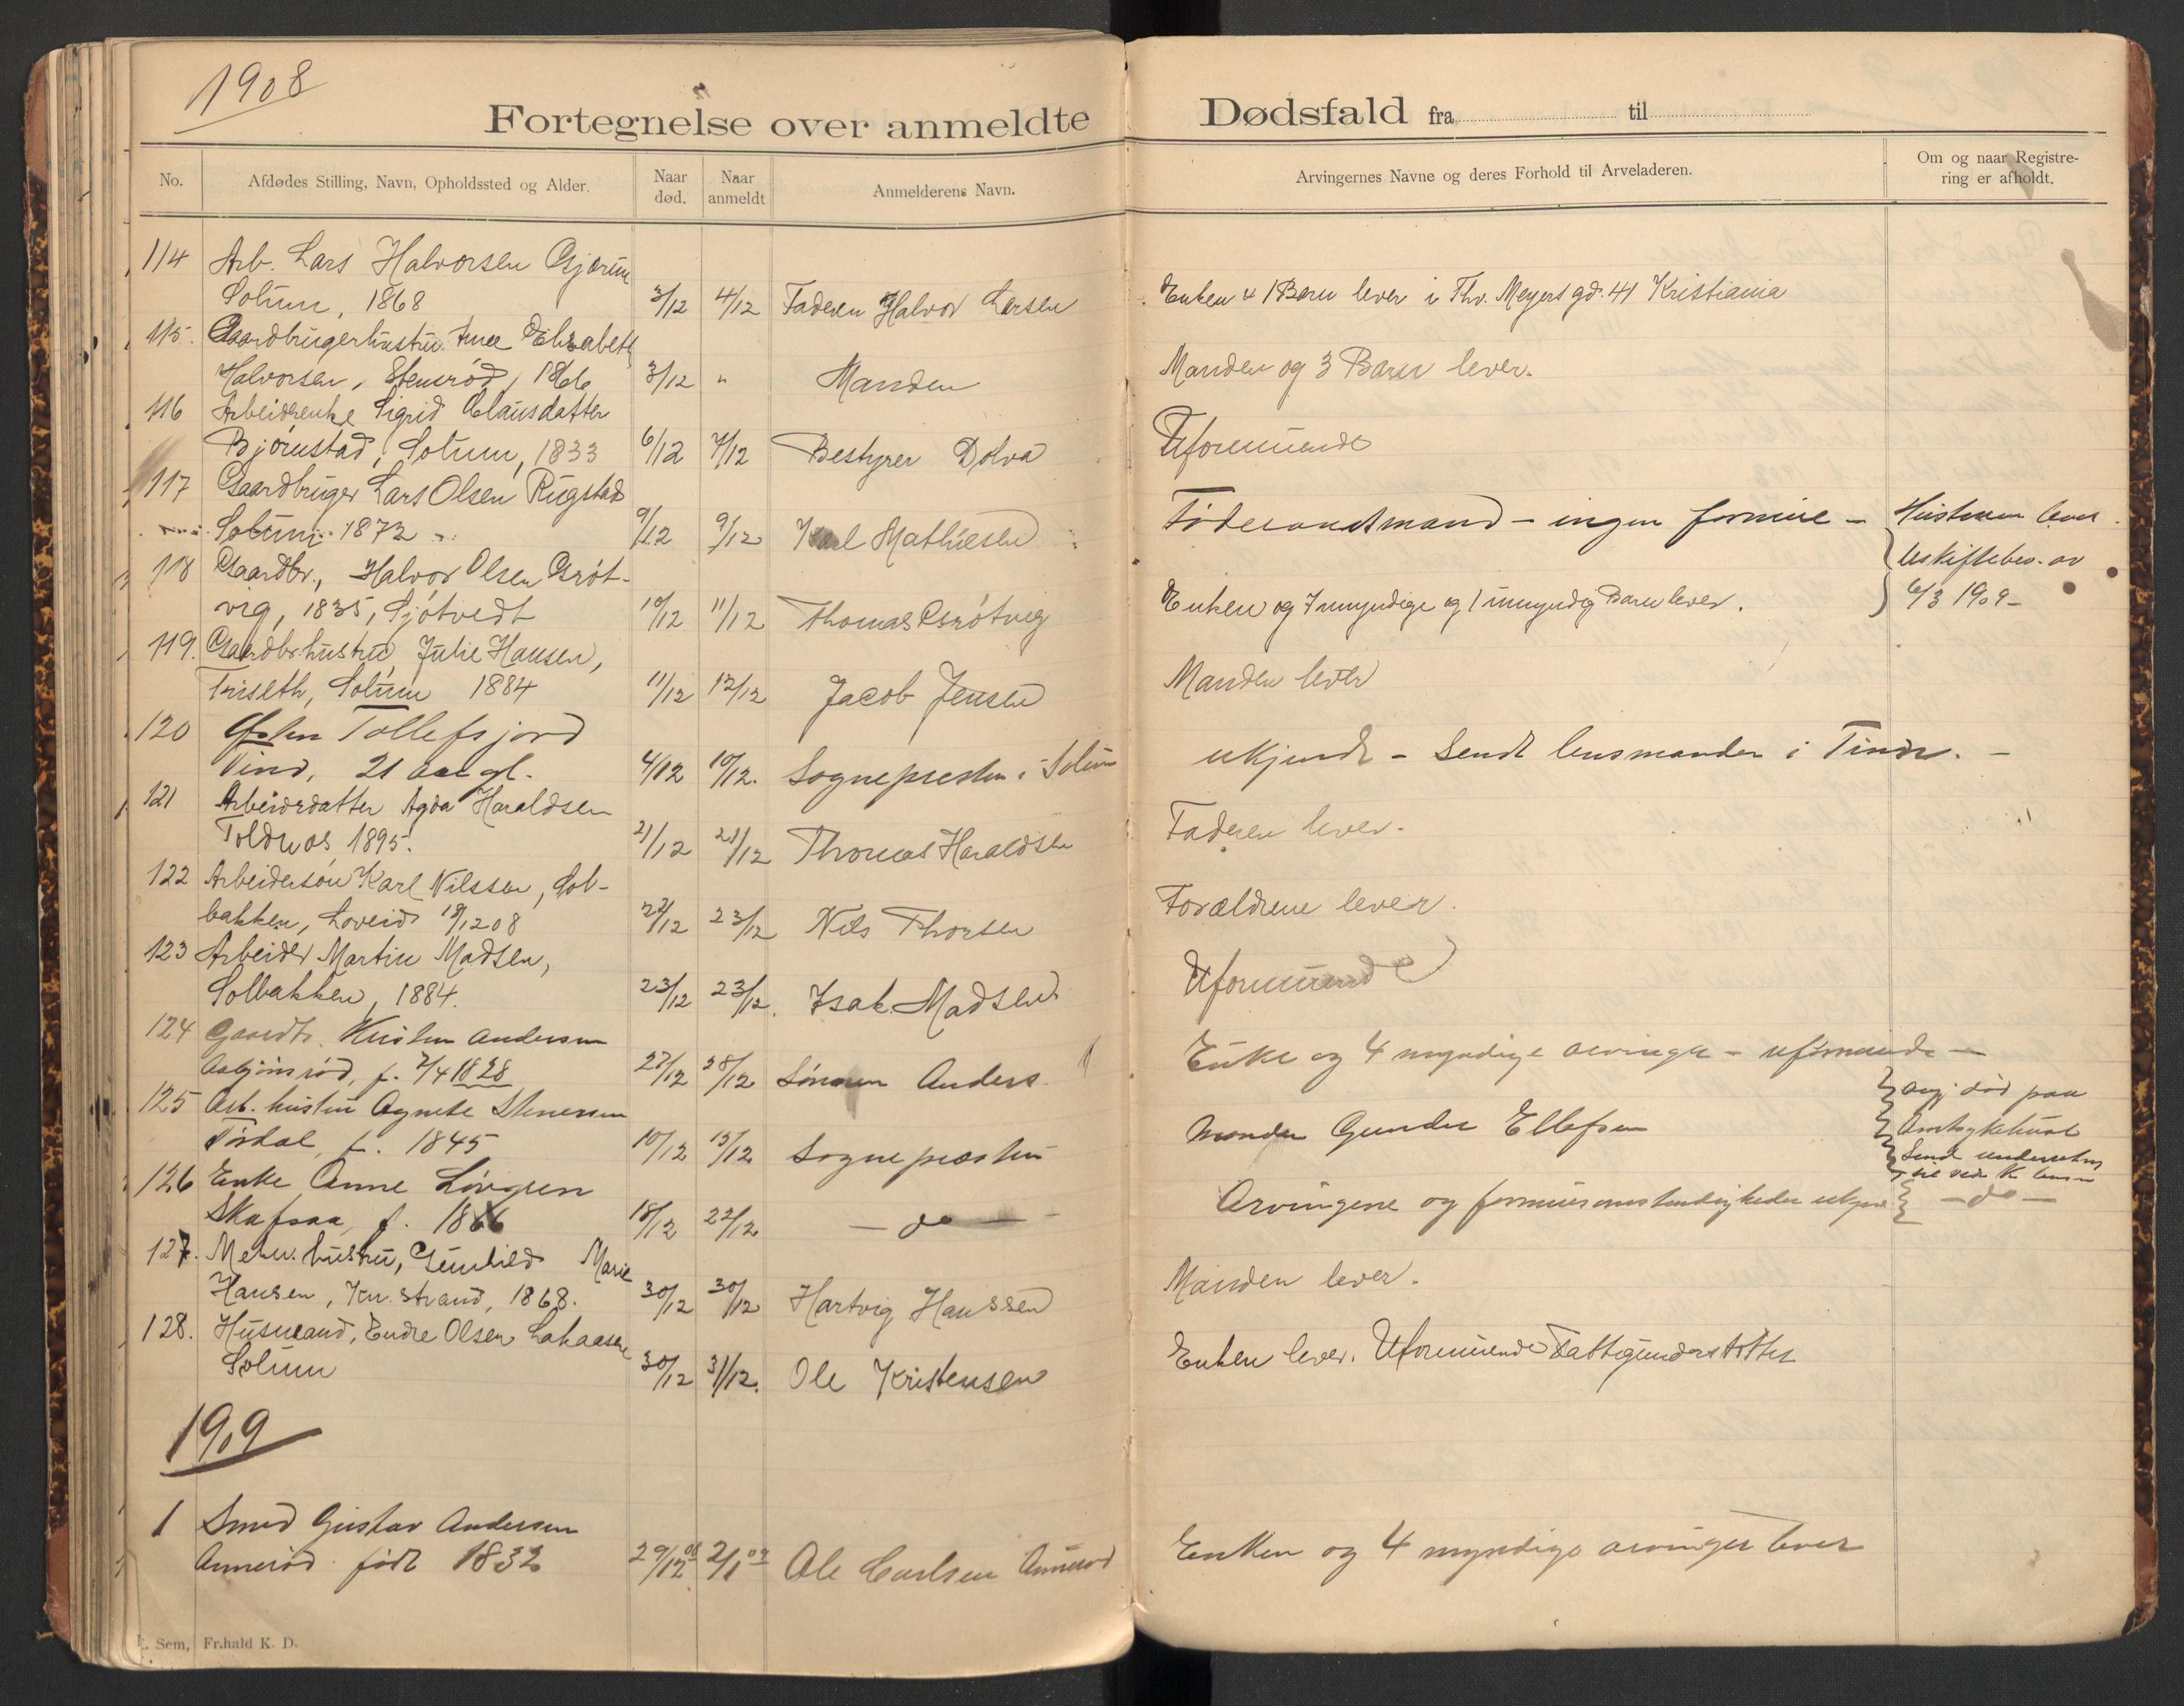 1908
Fortegnelse over anmeldte Dødsfald fra til
No. Afdødes Stilling, Navn, Opholdssted og Alder. Naar død. Naar anmeldt Anmelderens Navn. Arvingernes Navne og deres Forhold til Arveladeren. Om og naar Registrering er afholdt.
114 Arb. Lars Halvorsen Gjerum
Solum, 1868 3/12 4/12 Faderen Halvor Larsen Enken & 1 Barn lever i Thv. Meyers gd. 41 Kristiania
115. Gaardbrugerhustru Anne Elisabeth
Halvorsen, Stensrød, 1866 3/12 " Manden Manden og 3 Barn lever.
116 Arbeidsenke Sigrid Clausdatter
Bjørnstad, Solum, 1833 6/12 7/12 Bestyrer Dolva Uformuende
117 Gaardbruger Lars Olsen Rugstad
Solum 1872 9/12 9/12 Karl Mathiesen Føderaadsmand - ingen formue - Hustruen lever.
Uskiftebev. av
118 Gaardbr., Halvor Olsen Grøt-
vig, 1835, Sjøtvedt 10/12 11/12 Thomas Grøtvig Enken og 7 myndige og 1 umyndig Barn lever. 6/3 1909 -
119. Gaardbr.hustru, Julie Hansen,
Triseth, Solum 1884 11/12 12/12 Jacob Jensen Manden lever
120 Tollefsjord
Tind, 21 aar gl. 4/12 10/12. Sognepresten i Solum ukjendt - Sendt lensmanden i Tind. -
121 Arbeiderdatter Agda Haraldsen
Toldnæs, 1895. 21/12 21/12 Thomas Haraldsen Faderen lever.
122 Arbeidersøn Karl Nilssen, Sol-
bakken, Loveid 19/12 08 22/12 23/12 Nils Thorsen Forældrene lever.
123 Arbeider Martin Madsen,
Solbakken, 1884. 23/12 23/12. Isak Madsen Uformuende
124 Gaardbr. Kristen Andersen
Asbjønrød, f. 7/4 1828 27/12 28/12 Sønnen Anders Enke og 4 myndige arvinger - uformuende -
125 Arb. hustru Agnete Stenersen ang. død paa
Tørdal, f. 1845 10/12 15/12 Sognepræsten Manden Gunder Ellefsen Amtsykehuset
Send underretn.
126 Enke Anne Løvgren til ved k. lensm
Skafsaa, f. 1866 18/12 22/12 - do - Arvingene og formuesomstendigheder ukjend - do -
127. Mek. hustru, Gunhild Marie
Hansen, Kn. strand, 1868. 30/12 30/12 Hartvig Hanssen Manden lever.
128. Husmand, Endre Olsen Lakaasen
Solum 30/12 31/12. Ole Kristensen Enken lever. Uformuende Fattigunderstøttet
1909
1 Smed Gustav Andersen
Annerød født 1832 29/12 08 2/1 09 Ole Carlsen Annerød Enken og 4 myndige arvinger lever
Sem, Fr.hald K. D.